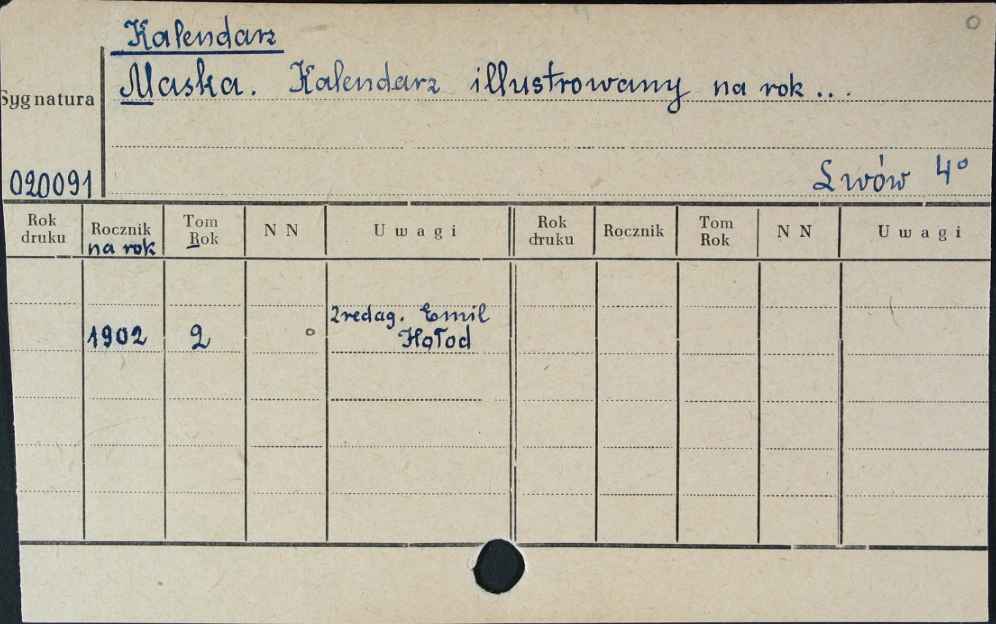 Kalendarz
Maska. Kalendarz illustrowany na rok...
Sygnatura
020091
Lwów 4°
Rok druku Rocznik na rok Tom Rok N N Uwagi Rok druku Rocznik Tom Rok N N Uwagi
1902 2 Zredag. Emil
Hołod